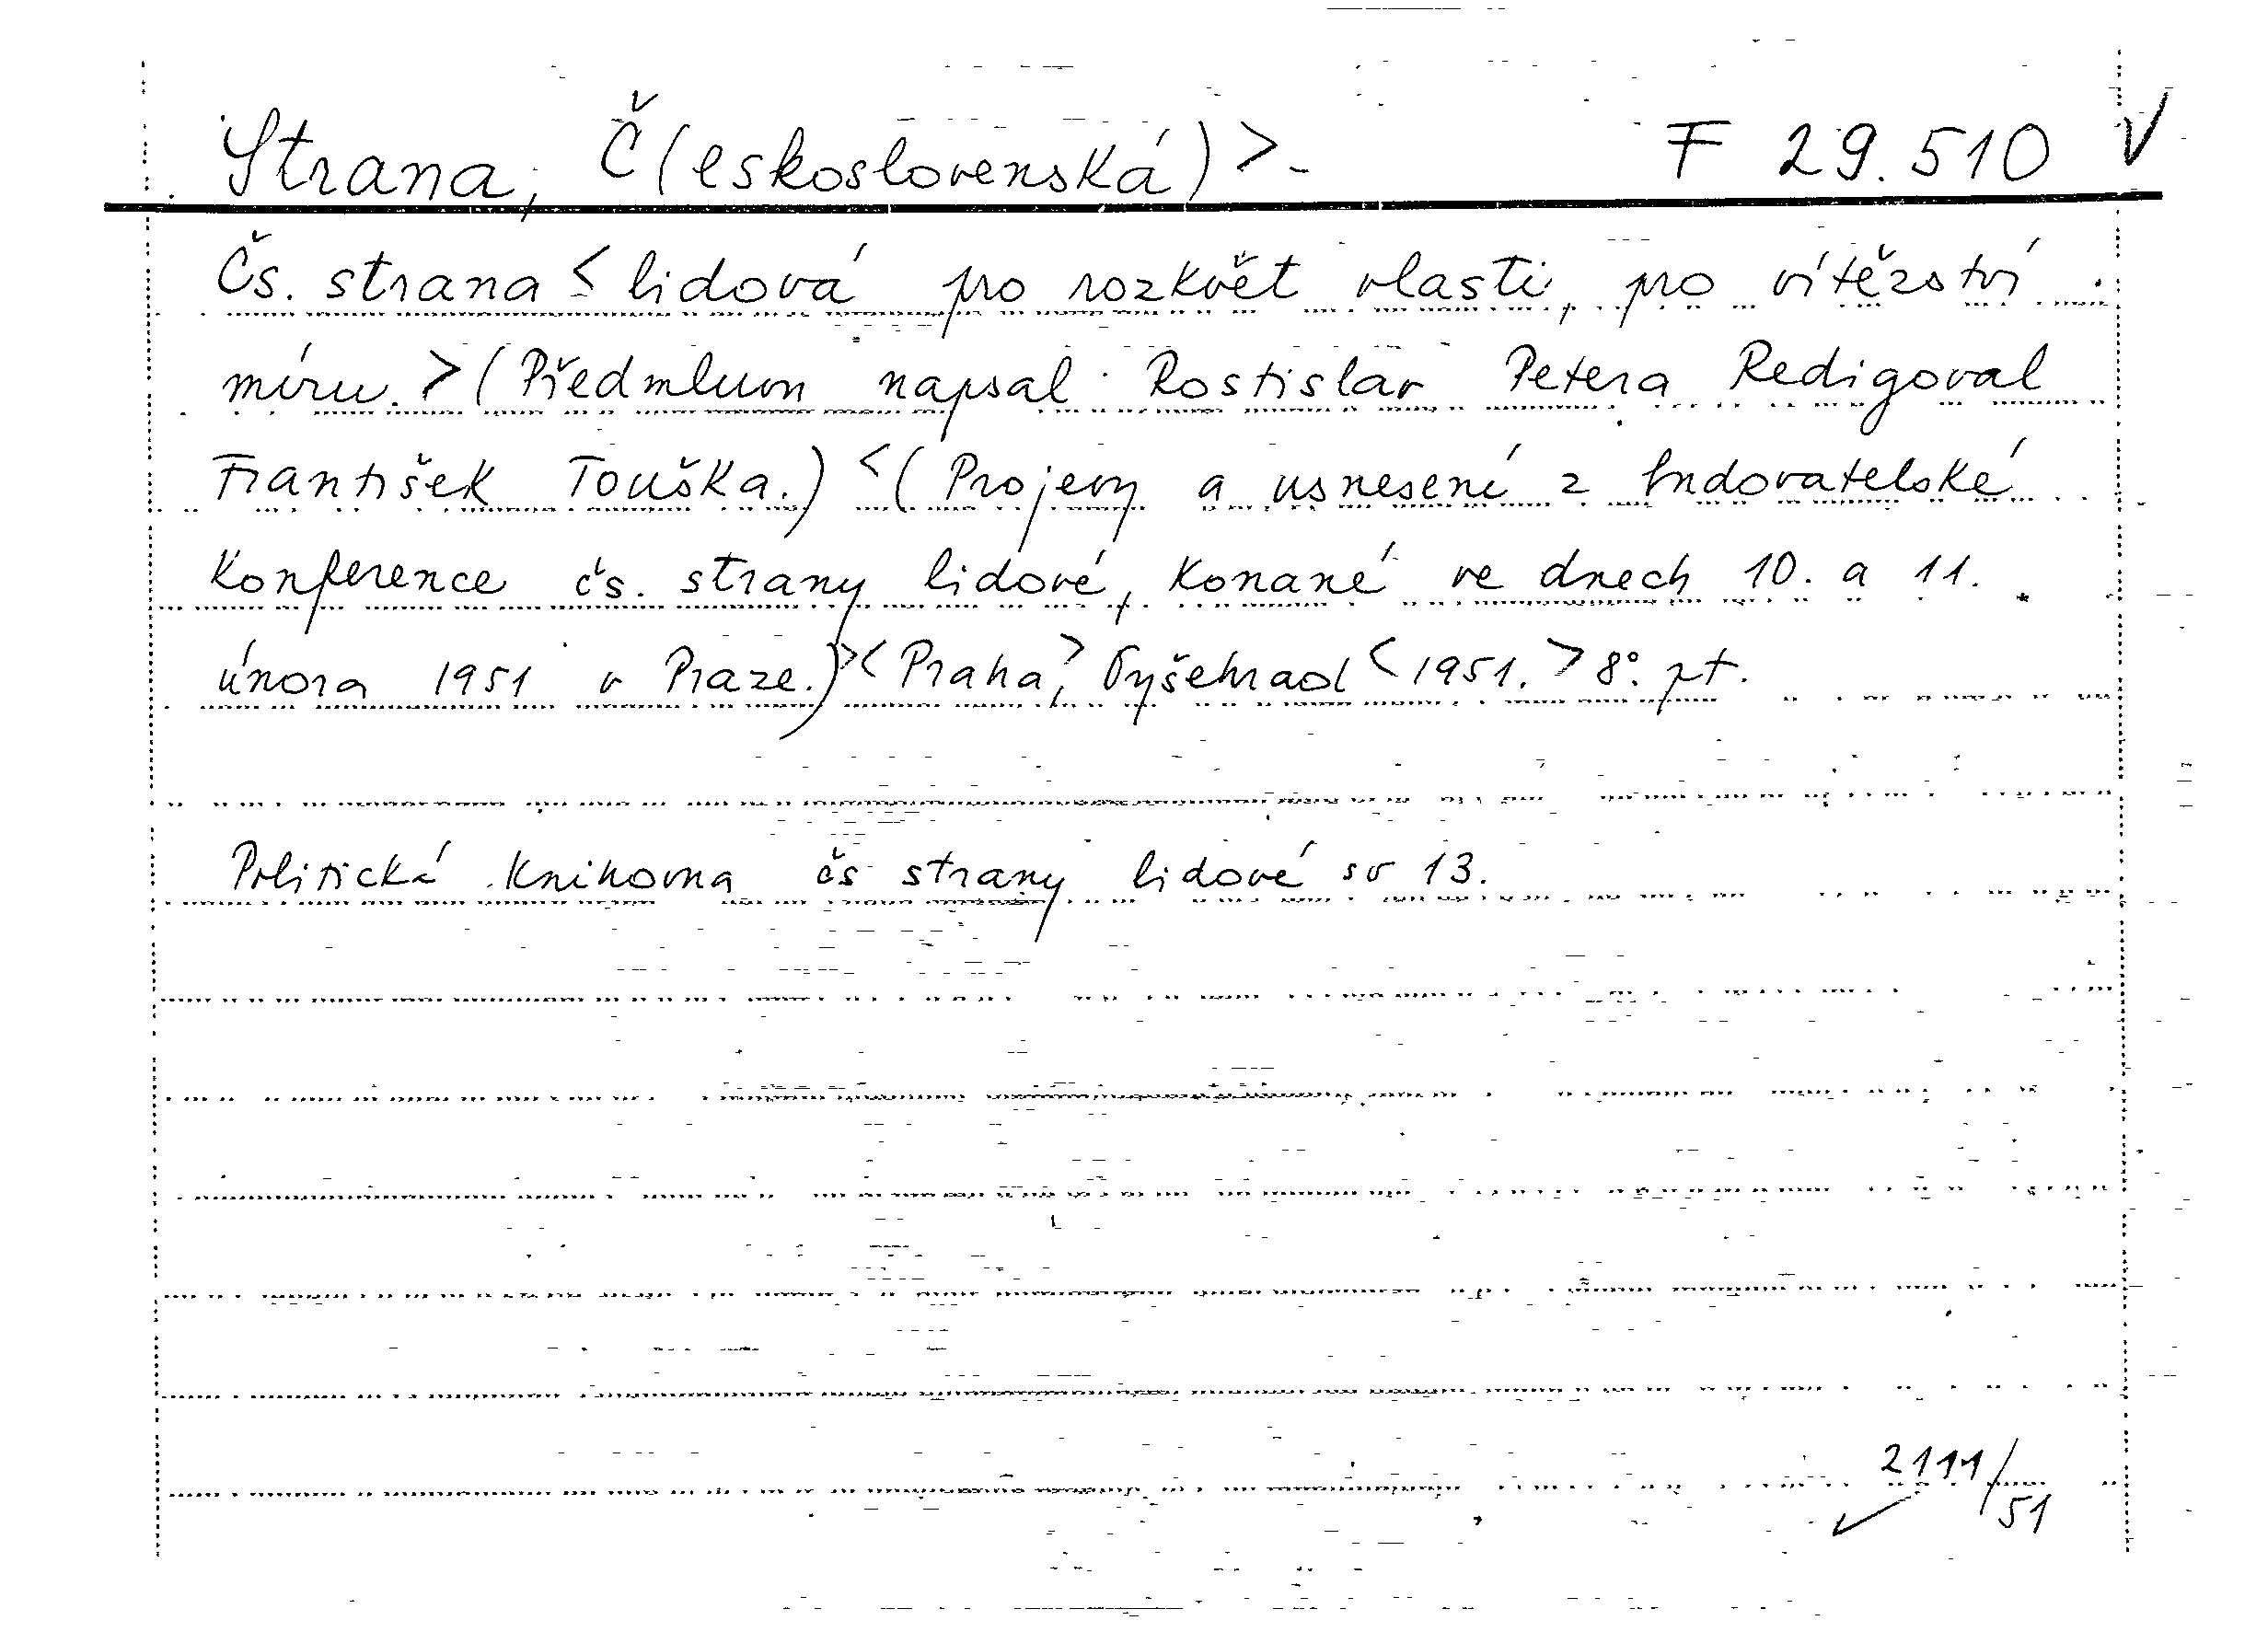 Strana, Č(eskoslovenská) >- F 29.510 V
Čs. strana < lidová pro rozkvět vlasti, pro vítězství
míru. > (Předmluvu napsal Rostislav Petera Redigoval
František Touška.) < (Projevy a usnesení z budovatelské
konference čs. strany lidové, konané ve dnech 10. a 11.
února 1951 v Praze.) > < Praha, > Vyšehrad < 1951. > 8°. pt.
Politická knihovna čs strany lidové sv 13.
2111/
51